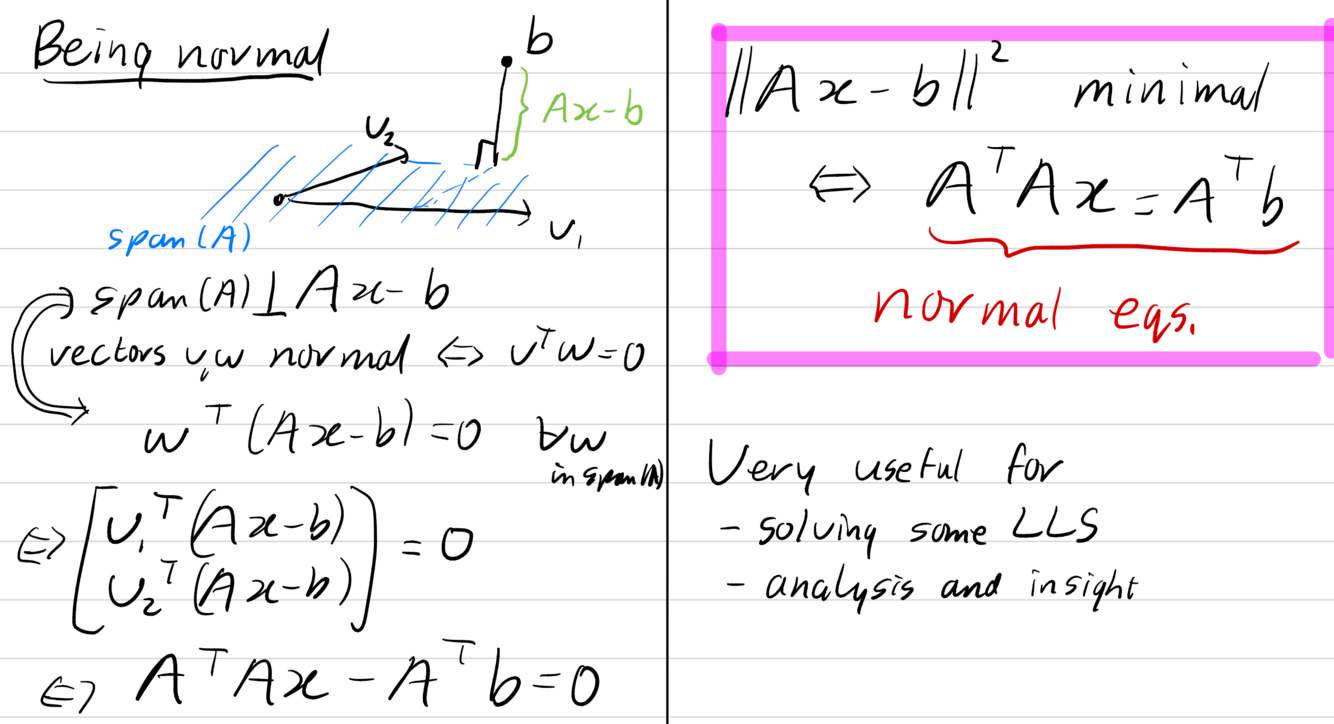 Being normal
b
Ax-b
v₂
v₁
span(A)
span(A)⊥Ax-b
vectors v,w normal ⇔ vᵀw=0
wᵀ(Ax-b)=0 ∀w
in span(A)
⇔ [v₁ᵀ(Ax-b)
v₂ᵀ(Ax-b)] = 0
⇔ AᵀAx-Aᵀb=0
||Ax-b||² minimal
⇔ AᵀAx=Aᵀb
normal eqs.
Very useful for
- solving some LLS
- analysis and insight